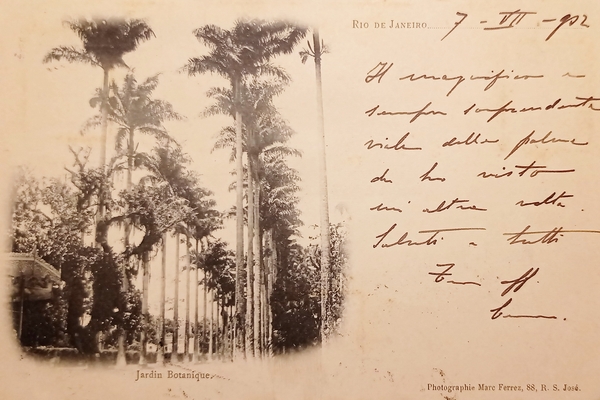 Rio de Janeiro 7 - VII - 902
Il magnifico e
sempre sorprendente
viale delle palme
che ho visto
un'altra volta.
Saluti a tutti
aff.
Jardin Botanique.
Photographie Marc Ferrez, 88, R. S. José.